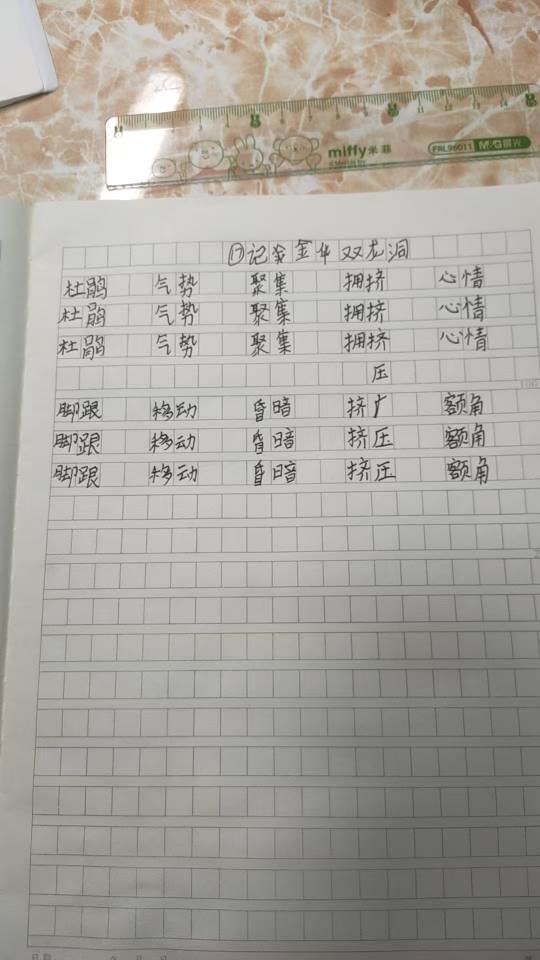 miffy 米菲 FRL96011 M&G 晨光
⑰记金华双龙洞
杜鹃 气势 聚集 拥挤 心情
杜鹃 气势 聚集 拥挤 心情
杜鹃 气势 聚集 拥挤 心情
压
脚跟 移动 昏暗 挤广 额角
脚跟 移动 昏暗 挤压 额角
脚跟 移动 昏暗 挤压 额角